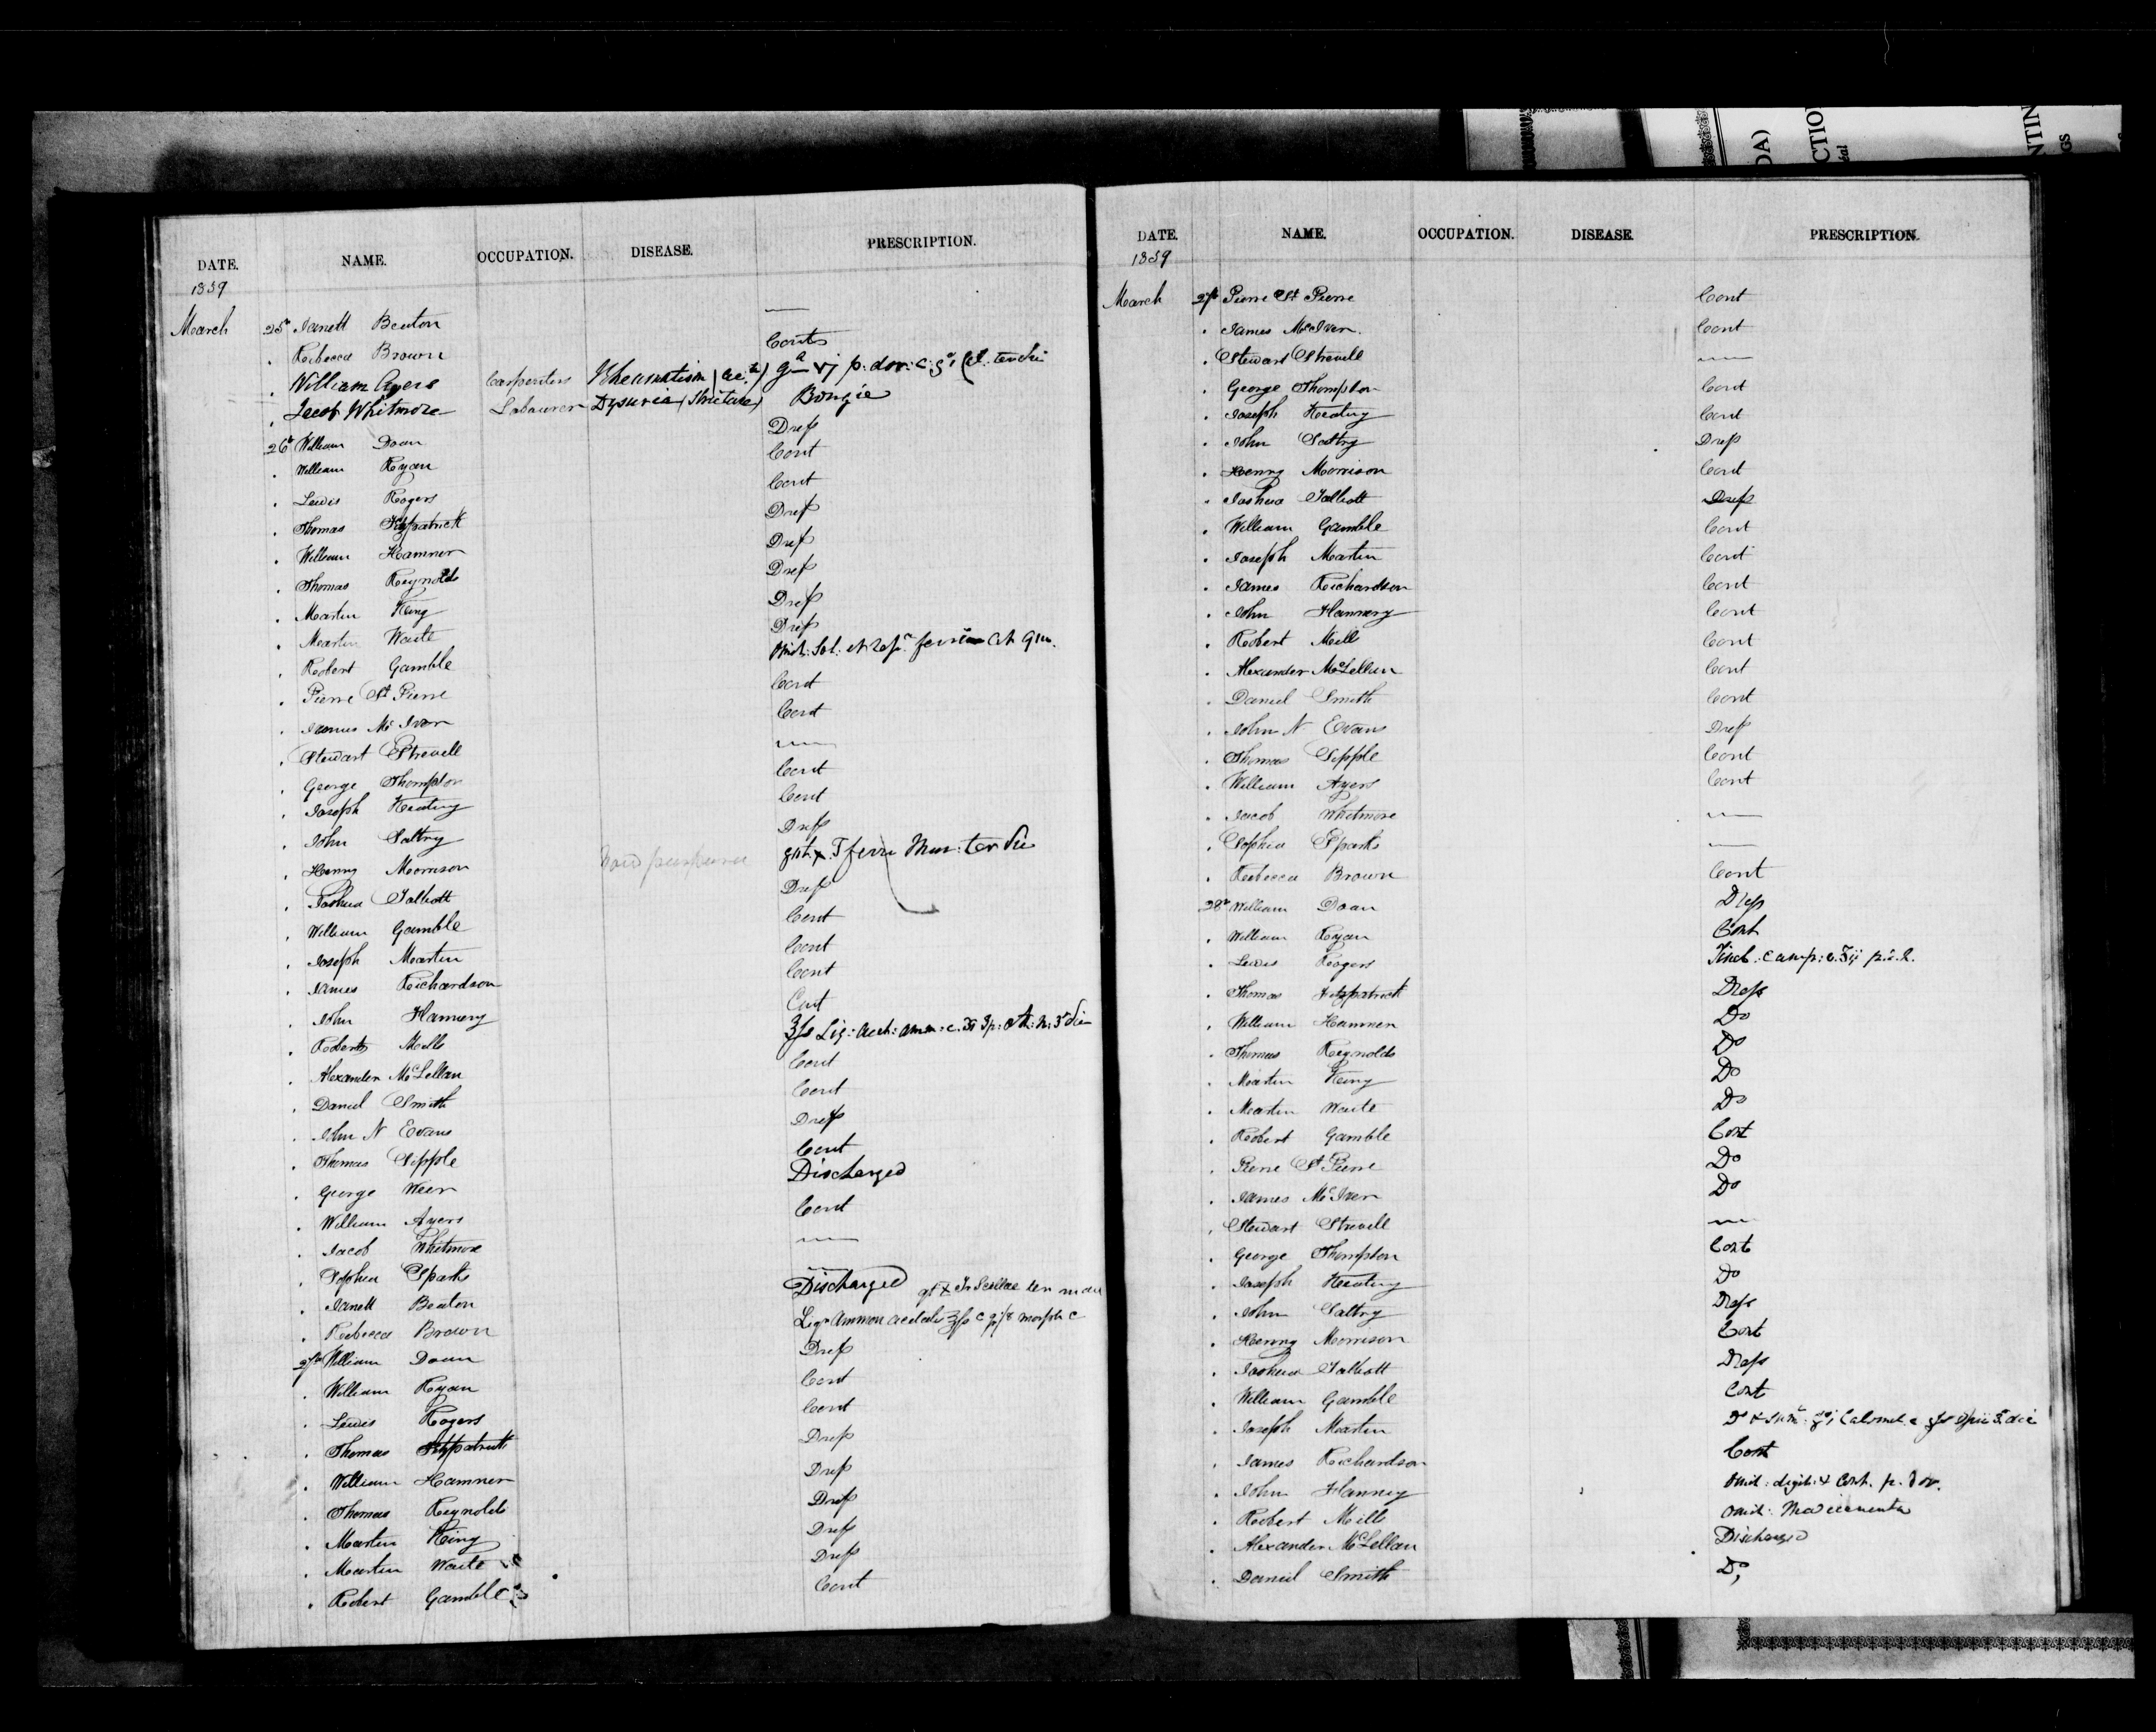 DATE. NAME. OCCUPATION. DISEASE. PRESCRIPTION.
1839
March 25th Janett Beaton —
. Rebecca Brown Cont
. William Ayers Carpenter Rheumatism p: dov: c: ter die
. Jacob Whitmore Labourer Dysuria (Stricture) Bougie
26th William Doan Dress
. William Ryan Cont
. Lewis Rogers Cont
. Thomas Fitzpatrick Dress
. William Hamner Dress
. Thomas Reynolds Dress
. Martin King Dress
. Martin Waite Dress
. Robert Gamble Omit: Sol. et
. Pierre St Pierre Cont
. James McIver Cont
. Stewart Strevell —
. George Thompson Cont
. Joseph Keating Cont
. John Saltry Dress
. Henry Morrison ferri Mur: ter die
. Joshua Talbott Dress
. William Gamble Cont
. Joseph Martin Cont
. James Richardson Cont
. John Flannery Cont
. Robert Mills Liq: acet: amm: c.
. Alexander McLellan Cont
. Daniel Smith Cont
. John N Evans Dress
. Thomas Sipple Cont
. George Weer Discharged
. William Ayers Cont
. Jacob Whitmore —
. Sophia Sparks —
. Janett Beaton Discharged
. Rebecca Brown Liqr Ammon acetatis c morph c
27th William Doan Dress
. William Ryan Cont
. Lewis Rogers Cont
. Thomas Fitzpatrick Dress
. William Hamner Dress
. Thomas Reynolds Dress
. Martin King Dress
. Martin Waite Dress
. Robert Gamble Cont
DATE. NAME. OCCUPATION. DISEASE. PRESCRIPTION.
1839
March 27th Pierre St Pierre Cont
. James McIver. Cont
. Stewart Strevell —
. George Thompson Cont
. Joseph Keating Cont
. John Saltry Dress
. Henry Morrison Cont
. Joshua Talbott Dress
. William Gamble Cont
. Joseph Martin Cont
. James Richardson Cont
. John Flannery Cont
. Robert Mills Cont
. Alexander McLellan Cont
. Daniel Smith Cont
. John N Evans Dress
. Thomas Sipple Cont
. William Ayers Cont
. Jacob Whitmore —
. Sophia Sparks —
. Rebecca Brown Cont
28th William Doan Dress
. William Ryan Cont
. Lewis Rogers Tinct: camp: c.
. Thomas Fitzpatrick Dress
. William Hamner Do
. Thomas Reynolds Do
. Martin King Do
. Martin Waite Do
. Robert Gamble Cont
. Pierre St Pierre Do
. James McIver Do
. Stewart Strevell —
. George Thompson Cont
. Joseph Keating Do
. John Saltry Dress
. Henry Morrison Cont
. Joshua Talbott Dress
. William Gamble Cont
. Joseph Martin Do Calomel c
. James Richardson Cont
. John Flannery Omit: digit: & Cont. p. dov.
. Robert Mills Omit: Medicamenta
. Alexander McLellan Discharged
. Daniel Smith Do